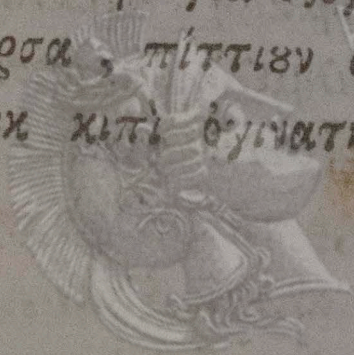 ρσα, πίττιȣν
κ κιπὶ ὀγινατι